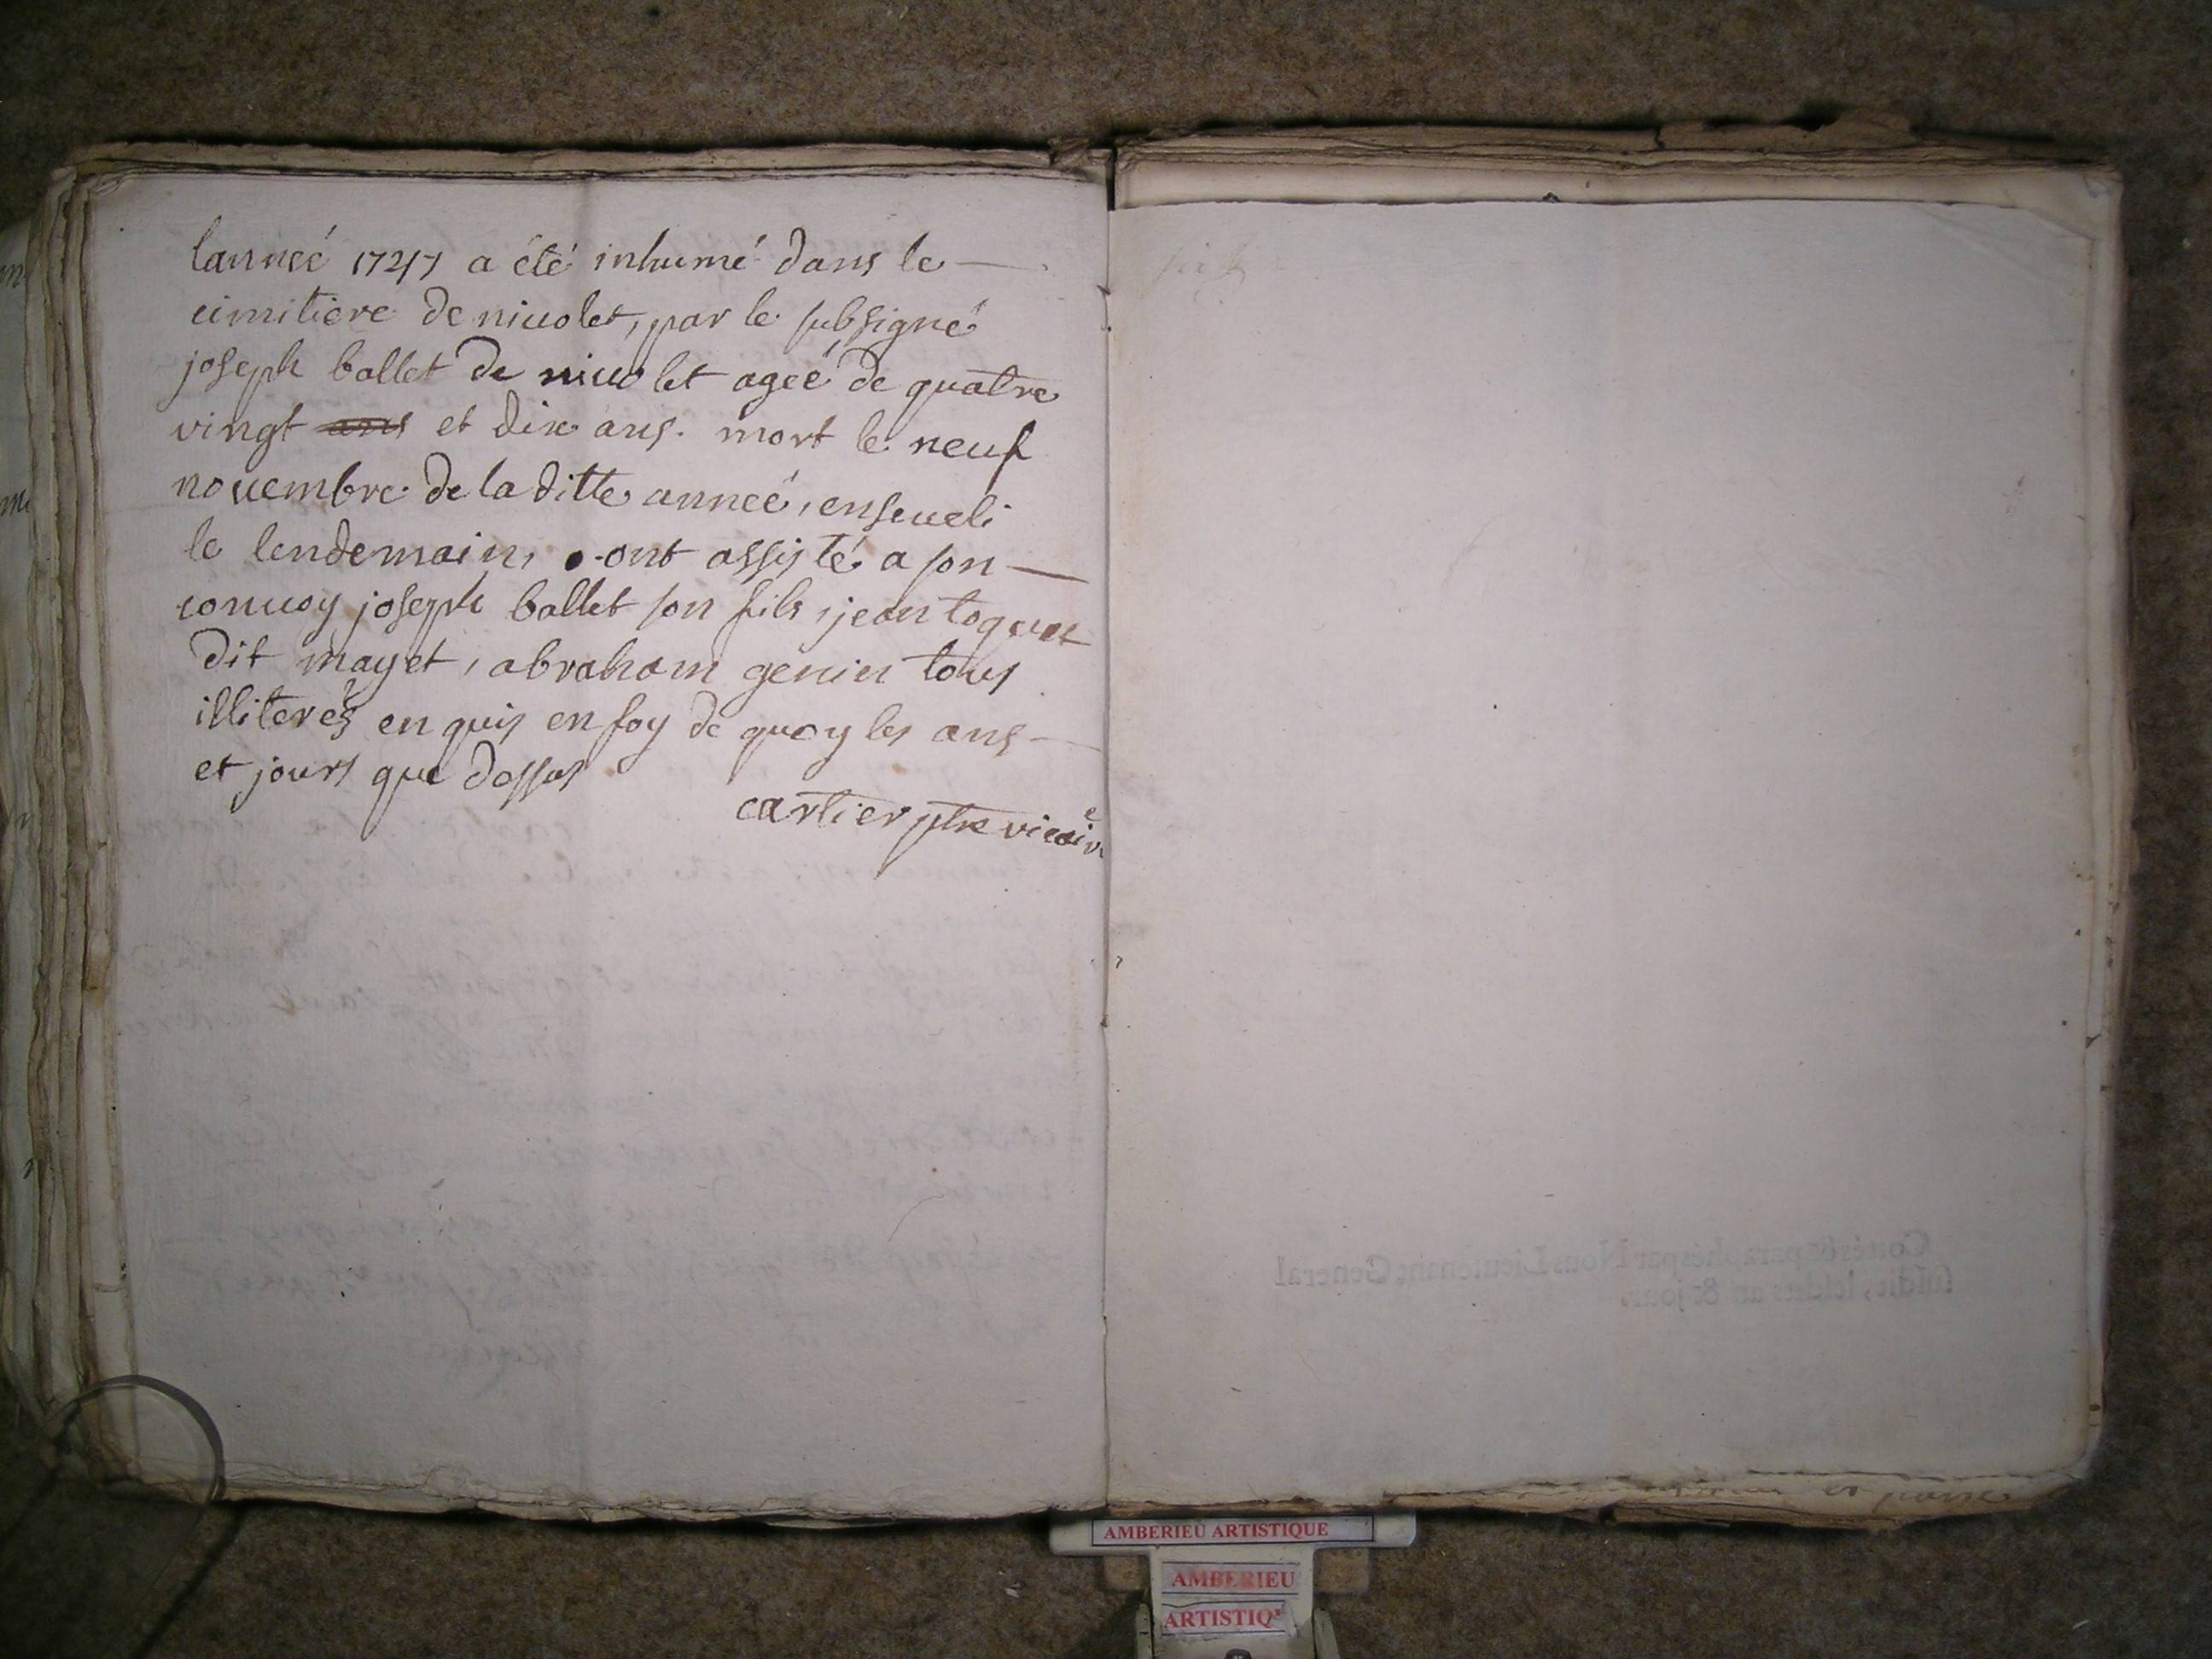 lanneé 1747 a été inhumé dans le
cimitiere de nivolet, par le subsigné
joseph ballet de nivolet ageé de quatre
vingt ans et dix ans. mort le neuf
novembre de la ditte anneé, enseveli
le lendemain, ont assisté a son
convoy joseph ballet son fils, jean toquet
dit mayet, abraham genin tous
illiterés enquis en foy de quoy les ans
et jours que dessus
cartier ptre vicaire
Cottés & paraphés par Nous Lieutenant General
susdit, lesdits an & jour.
et parrein
AMBERIEU ARTISTIQUE
AMBERIEU
ARTISTIQ